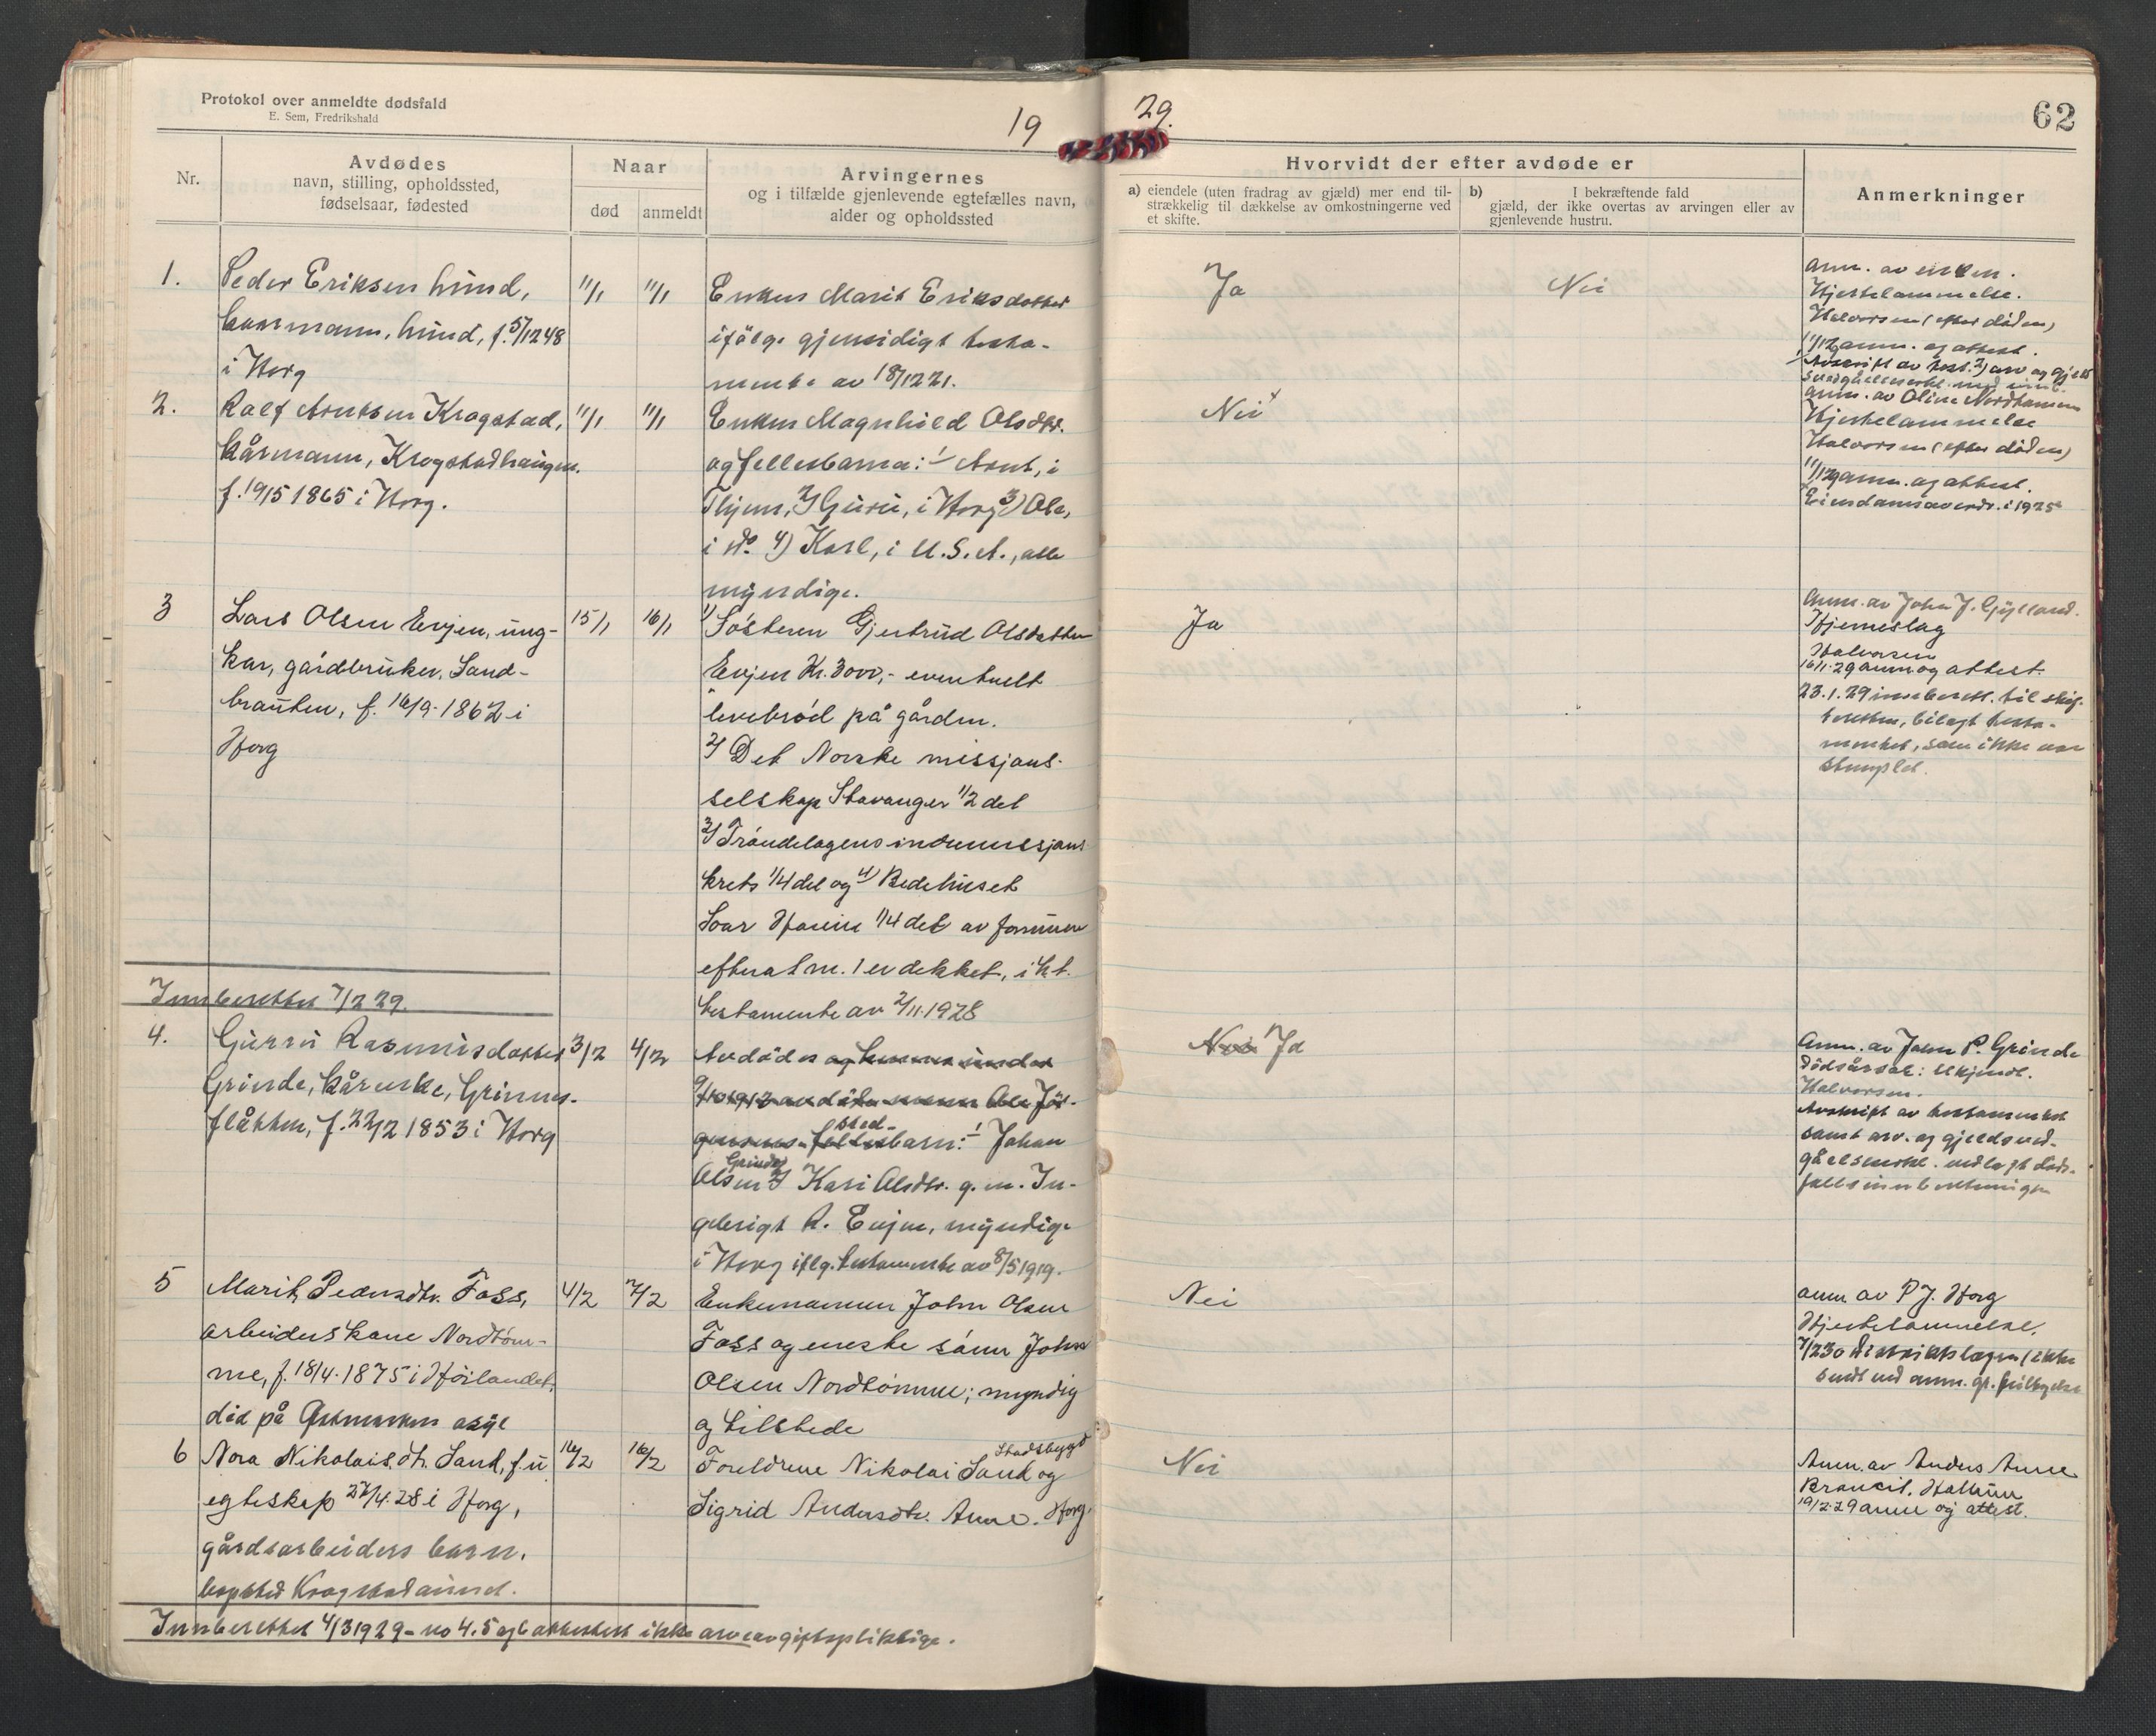 Protokol over anmeldte dødsfald
E. Sem, Fredrikshald
19
29.
62
Nr.
Avdødes
navn, stilling, opholdssted,
fødselsaar, fødested
Naar
død
anmeldt
Arvingernes
og i tilfælde gjenlevende egtefælles navn,
alder og opholdssted
Hvorvidt der efter avdøde er
a) eiendele (uten fradrag av gjæld) mer end til-
strækkelig til dækkelse av omkostningerne ved
et skifte.
b) I bekræftende fald
gjæld, der ikke overtas av arvingen eller av
gjenlevende hustru.
Anmerkninger
1.
Peder Eriksen Lund,
Lund, f. 5/12 48
i Horg
11/1
11/1
Enken Marit Eriksdatter
ifölge gjensidigt testa-
mente av 18/12 21.
Ja
Nei
Anm. av enken.
Hjertelammelse.
Halvorsen (efter döden)
anm. og attest.
2.
Ralf Arntsen Krogstad,
kårmann, Krogstadhaugen.
f. 19/5 1865 i Horg.
11/1
11/1
Enken Magnhild Olsdtr.
og fellesbarna: 1/ Arnt, i
2/ Guru, i Horg 3) Ole,
i do. 4) Karl, i U.S.A., alle
myndige.
Nei x
anm. av Oline
Hjertelammelse
Halvorsen (efter döden)
anm. og attest.
i 1925
3
Lars Olsen Evjen, ung-
kar, gårdbruker, Sand-
brauten, f. 16/9-1862 i
Horg
15/1
16/1
1/ Søsteren Gjertrud Olsdatter
Evjen Kr. 3000,- eventuelt
levebrød på gården.
2/ Det Norske missjons-
selskap Stavanger 1/2 del
3/ Trøndelagens indremissjons
krets 1/4 del og 4) Bedehuset
1/4 del av formuen
efterat nr. 1 er dekket, i h.t.
testamente av 2/11-1928
Ja
Anm. av John J. Gylland.
Hjerneslag
Halvorsen
16/1-29 anm. og attest.
23.1.29 innberett. til skif-
teretten, bilagt testa-
mentet, som ikke var
stemplet.
Innberettet 7/2 29.
4.
Gurru Rasmusdatter
Grinde, kårenke, Grinnes-
flåtten, f. 22/2 1853 i Horg
3/2
4/2
Avdödes
sted-
barn: 1 Johan
Olsen Grinde 2/ Kari Olsdtr. g.m. In-
gebrigt R. Evjen, myndige
i Horg iflg. testamente av 8/5 1919.
Nei Ja
Anm. av John P. Grinde
Dødsårsak: Ukjendt.
Halvorsen.
Avskrift av testamentet
samt arv. og gjeldsved-
gåelseserkl. vedlagt döds-
fallsinnberetningen
5
Marit Pedersdtr. Foss,
arbeiderskone Nordtøm-
me, f. 18/4-1875 i Høilandet,
död på Østmarken asyl
4/2
7/2
Enkemannen John Olsen
Foss og eneste sønn John
Olsen Nordtømme; myndig
og tilstede
Nei
anm av P J. Horg
Hjertelammelse.
6
Nora Nikolaisdtr. Sand, f. u
egteskap 27/4.28 i Horg,
gårdsarbeiders barn.
bopsted Krogstadaunet.
16/2
16/2
Foreldrene Nikolai Sand Stadsbygd og
Sigrid Andersdtr. Aune. Horg.
Nei
Anm. av Anders Aune
Bronkit. Hallum
19/2-29 anm og attest.
Innberettet 4/3 1929 - no 4. 5 og 6 attestert ikke arveavgiftspliktige.